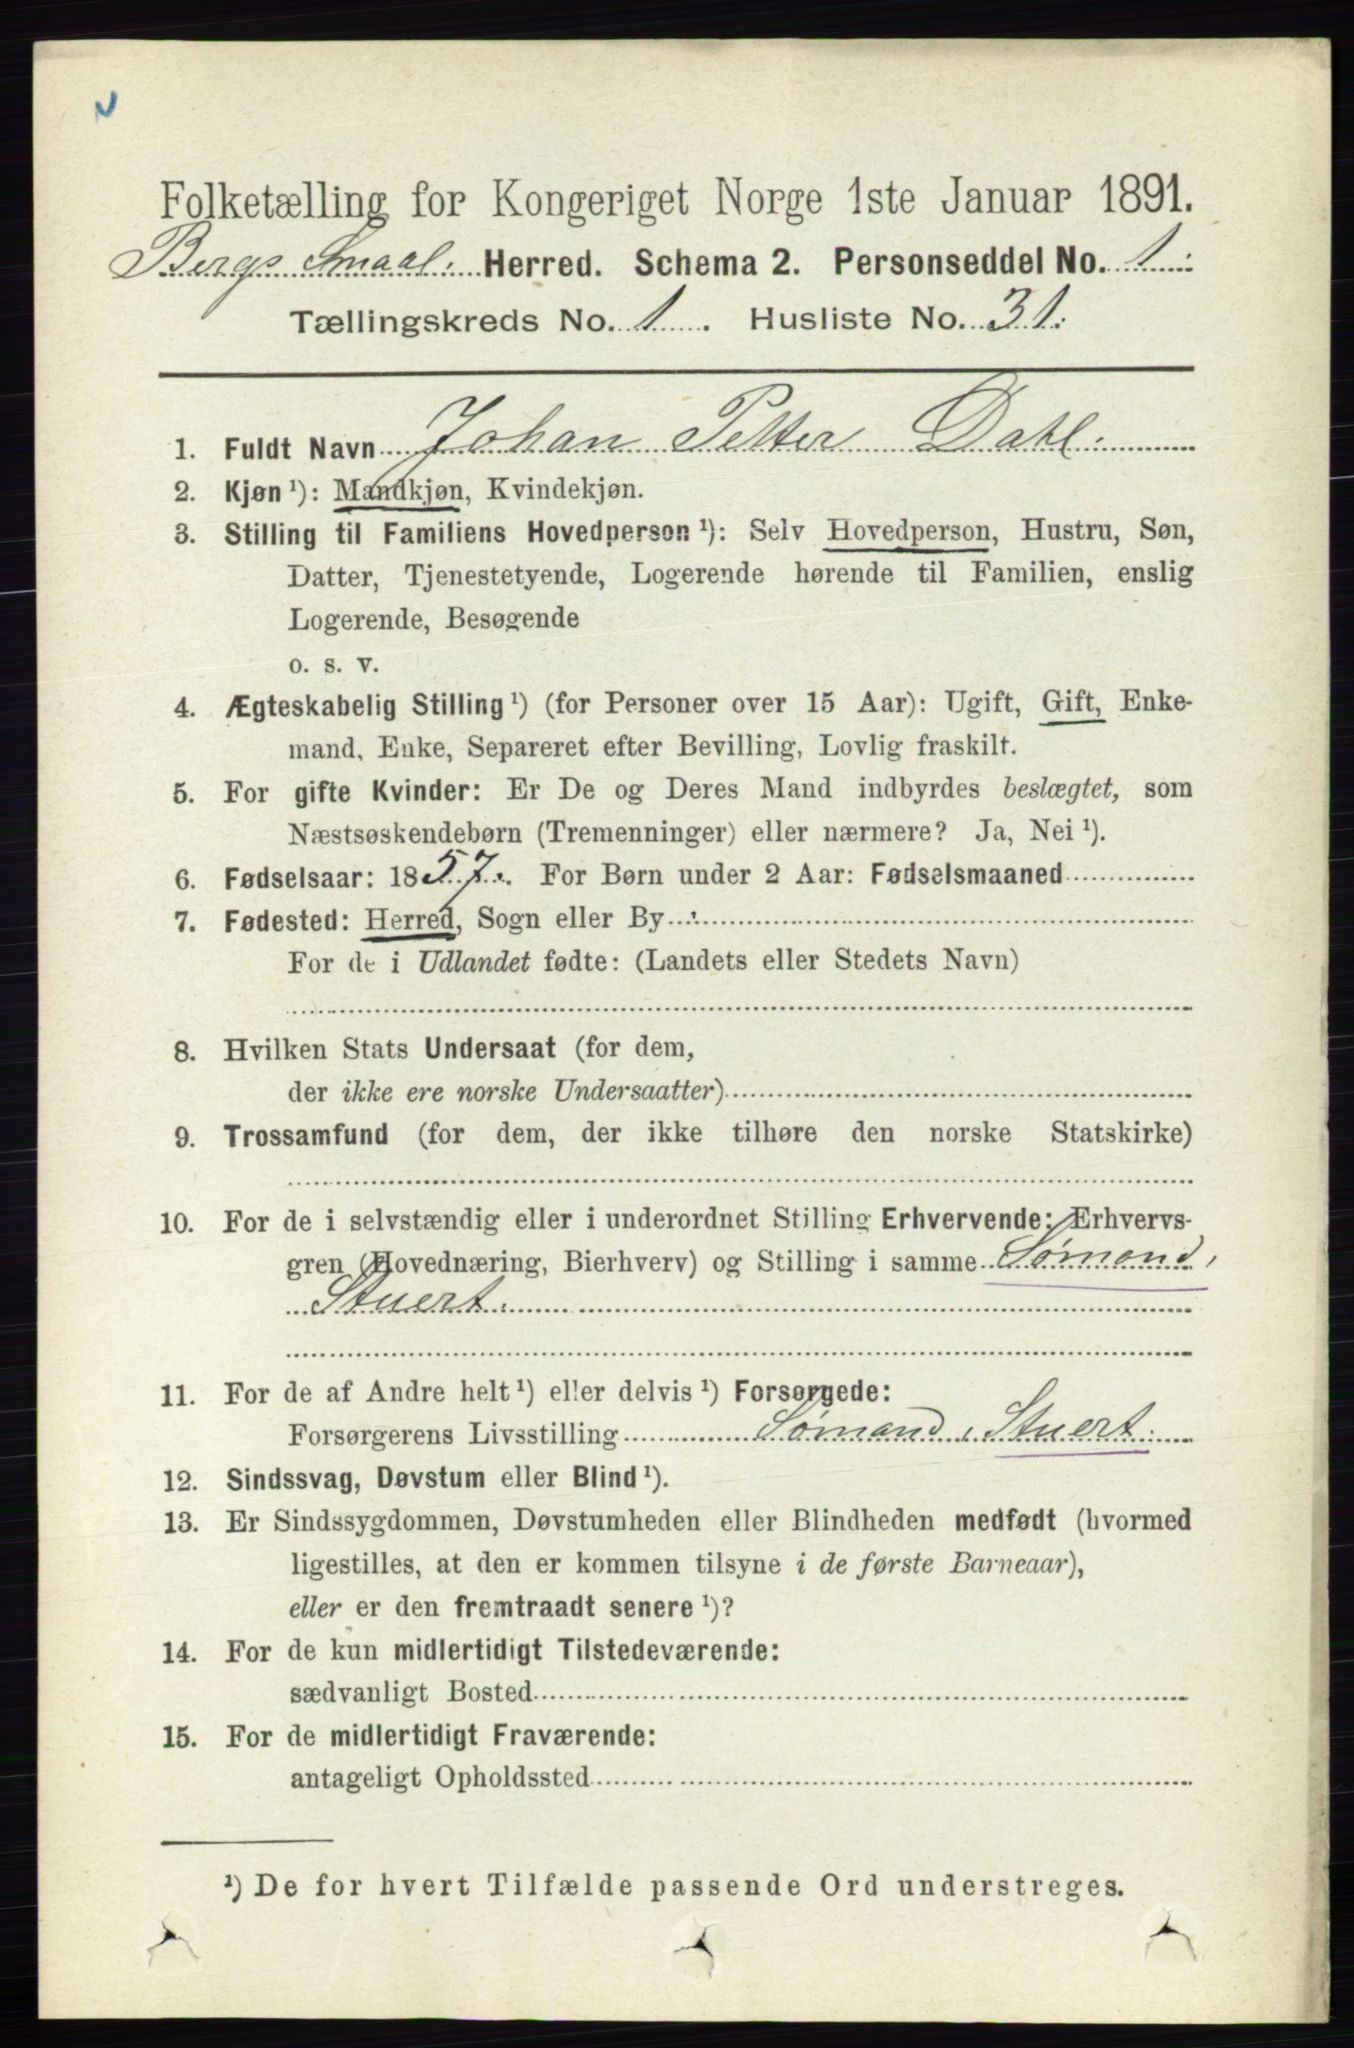 Folketælling for Kongeriget Norge 1ste Januar 1891.
Bergs Smaal. Herred. Schema 2. Personseddel No. 1.
Tællingskreds No. 1. Husliste No. 31.
1. Fuldt Navn Johan Petter Dahl.
2. Kjøn ¹): Mandkjøn, Kvindekjøn.
3. Stilling til Familiens Hovedperson ¹): Selv Hovedperson, Hustru, Søn,
Datter, Tjenestetyende, Logerende hørende til Familien, enslig
Logerende, Besøgende
o. s. v.
4. Ægteskabelig Stilling ¹) (for Personer over 15 Aar): Ugift, Gift, Enke-
mand, Enke, Separeret efter Bevilling, Lovlig fraskilt.
5. For gifte Kvinder: Er De og Deres Mand indbyrdes beslægtet, som
Næstsøskendebørn (Tremenninger) eller nærmere? Ja, Nei ¹).
6. Fødselsaar: 1857. For Børn under 2 Aar: Fødselsmaaned
7. Fødested: Herred, Sogn eller By
For de i Udlandet fødte: (Landets eller Stedets Navn)
8. Hvilken Stats Undersaat (for dem,
der ikke ere norske Undersaatter)
9. Trossamfund (for dem, der ikke tilhøre den norske Statskirke)
10. For de i selvstændig eller i underordnet Stilling Erhvervende: Erhvervs-
gren (Hovednæring, Bierhverv) og Stilling i samme Sømand,
Stuert.
11. For de af Andre helt ¹) eller delvis ¹) Forsørgede:
Forsørgerens Livsstilling Sømand, Stuert.
12. Sindssvag, Døvstum eller Blind ¹).
13. Er Sindssygdommen, Døvstumheden eller Blindheden medfødt (hvormed
ligestilles, at den er kommen tilsyne i de første Barneaar),
eller er den fremtraadt senere ¹)?
14. For de kun midlertidigt Tilstedeværende:
sædvanligt Bosted
15. For de midlertidigt Fraværende:
antageligt Opholdssted
¹) De for hvert Tilfælde passende Ord understreges.